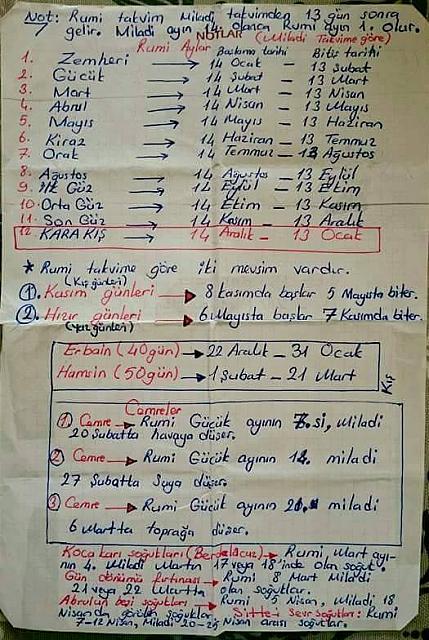 Not: Rumi takvim Miladi takvimden 13 gün sonra
gelir. Miladi ayın olunca Rumi ayın 1. olur.
NOTLAR
Rumi Aylar Başlama tarihi Bitiş tarihi (Miladi Takvime göre)
1. Zemheri → 14 Ocak – 13 Şubat
2. Gücük → 14 Şubat – 13 Mart
3. Mart → 14 Mart – 13 Nisan
4. Abrul → 14 Nisan – 13 Mayıs
5. Mayıs → 14 Mayıs – 13 Haziran
6. Kiraz → 14 Haziran – 13 Temmuz
7. Orak → 14 Temmuz – 13 Ağustos
8. Ağustos → 14 Ağustos – 13 Eylül
9. İlk Güz → 14 Eylül – 13 Ekim
10. Orta Güz → 14 Ekim – 13 Kasım
11. Son Güz → 14 Kasım – 13 Aralık
12. KARA KIŞ → 14 Aralık – 13 Ocak
* Rumi takvime göre iki mevsim vardır.
(Kış günleri)
1. Kasım günleri → 8 kasımda başlar 5 Mayısta biter.
2. Hızır günleri → 6 Mayısta başlar 7 Kasımda biter.
(Yaz günleri)
Erbain (40 gün) → 22 Aralık – 31 Ocak
Hamsin (50 gün) → 1 Şubat – 21 Mart
Kış
Cemreler
1) Cemre → Rumi Gücük ayının 7.si, Miladi
20 Şubatta havaya düşer.
2) Cemre → Rumi Gücük ayının 14. miladi
27 Şubatta Suya düşer.
3) Cemre → Rumi Gücük ayının miladi
6 Martta toprağa düşer.
Koca karı soğukları → Rumi, Mart ayı-
nın 4. Miladi Martın 17 veya 18'inde olan soğuk.
Gün dönümü fırtınası → Rumi 8 Mart Miladi
21 veya 22 Martta olan soğuklar.
Abrulun beşi soğukları → Rumi 5 Nisan, Miladi 18
Nisan'da görülen soğuklar. Sitte-i Sevr Soğukları: Rumi
7-12 Nisan, Miladi Nisan arası soğuklar.